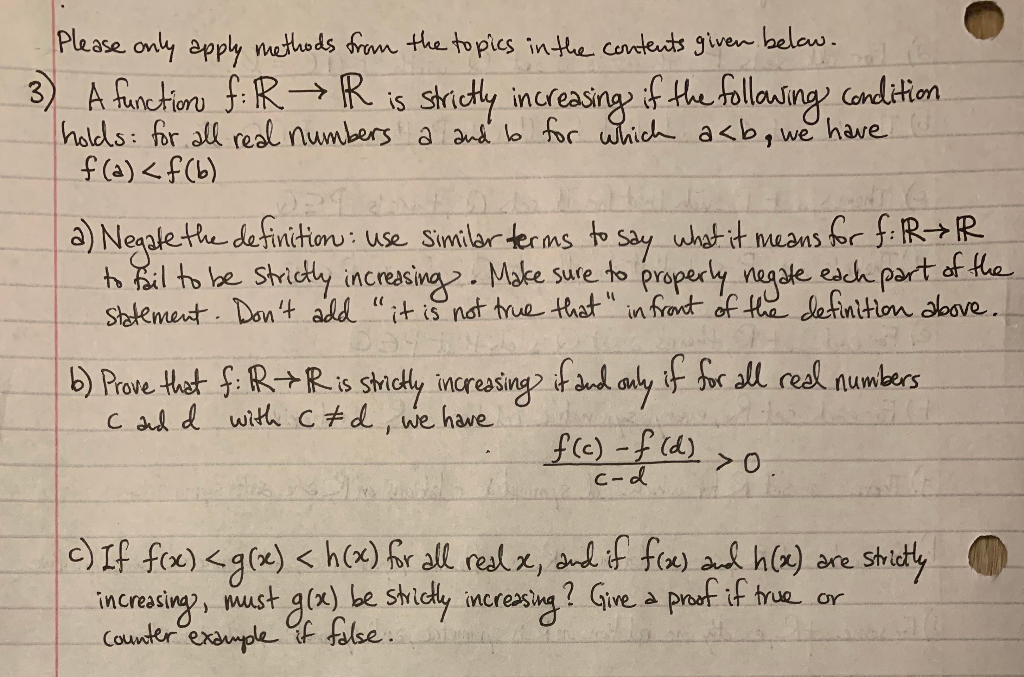 Please only apply methods from the topics in the contents given below.
3) A function f: ℝ → ℝ is strictly increasing if the following condition
holds: for all real numbers a and b for which a<b, we have
f(a) < f(b)
a) Negate the definition: use similar terms to say what it means for f: ℝ→ℝ
to fail to be strictly increasing. Make sure to properly negate each part of the
statement. Don't add "it is not true that" in front of the definition above.
b) Prove that f: ℝ→ℝ is strictly increasing if and only if for all real numbers
c and d with c ≠ d, we have
f(c) - f(d)
c-d
> 0.
c) If f(x) < g(x) < h(x) for all real x, and if f(x) and h(x) are strictly
increasing, must g(x) be strictly increasing? Give a proof if true or
counter example if false.